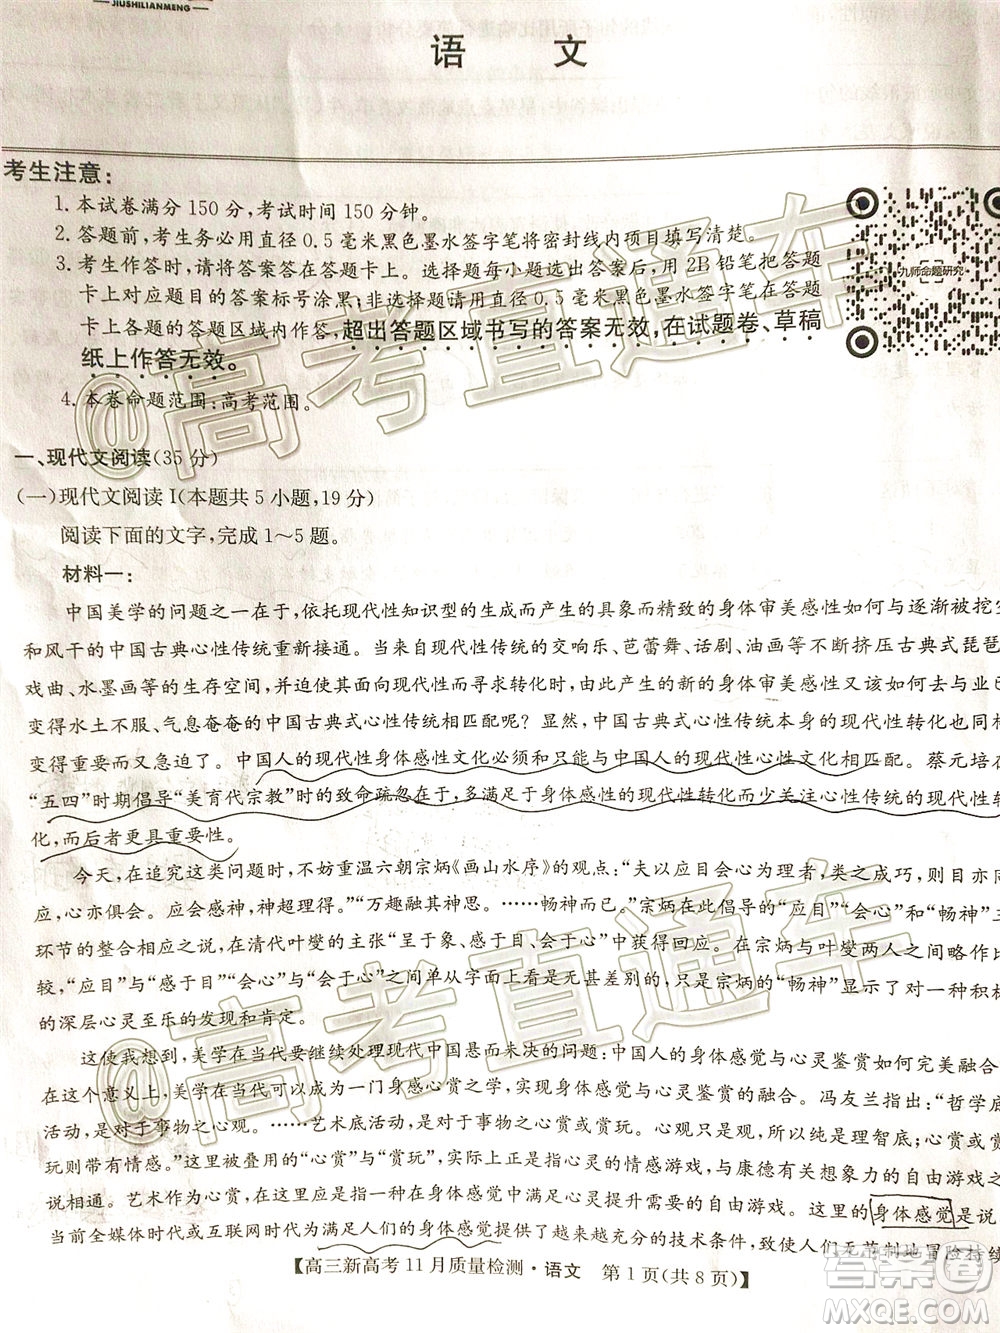 JIUSHILIANMENG
语 文
考生注意：
1. 本试卷满分 150 分，考试时间 150 分钟。
2. 答题前，考生务必用直径 0.5 毫米黑色墨水签字笔将密封线内项目填写清楚。
3. 考生作答时，请将答案答在答题卡上。选择题每小题选出答案后，用 2B 铅笔把答题
卡上对应题目的答案标号涂黑；非选择题请用直径 0.5 毫米黑色墨水签字笔在答题
卡上各题的答题区域内作答，超出答题区域书写的答案无效，在试题卷、草稿
纸上作答无效。
4. 本卷命题范围：高考范围。
九师命题研究
一、现代文阅读(35 分)
(一)现代文阅读 I(本题共 5 小题，19 分)
阅读下面的文字，完成 1～5 题。
材料一：
中国美学的问题之一在于，依托现代性知识型的生成而产生的具象而精致的身体审美感性如何与逐渐被挖空
和风干的中国古典心性传统重新接通。当现代的交响乐、芭蕾舞、话剧、油画等不断挤压古典式琵琶
戏曲、水墨画等的生存空间，并直接实现着身体感觉的现代转化时，由此产生的新的身体审美感性又该如何去与业已
变得水土不服、气息奄奄的中国古典式心性传统相匹配呢？显然，中国古典式心性传统本身的现代性转化同样
变得亟待而紧迫！中国人的现代性身体感性文化必须和只能与中国人的现代性心性文化相匹配。蔡元培在
“五四”时期倡导“美育代宗教”时的致命疏忽在于，多满足于身体感性的现代性转化而少关注心性传统的现代性转
化，而后者更具重要性。
今天，在追究这类问题时，不妨重温六朝宗炳《画山水序》的观点：“夫以应目会心为理者，类之成巧，则目
应，心亦俱会。应会感神，神超理得。”“万趣融其神思。……畅神而已。”宗炳在此倡导的“应目”“会心”和“畅神”三
环节的整合相应之说，在清代叶燮的主张“呈于象、感于目、会于心”中获得回应。在宗炳与叶燮两人之间略作比
较，“应目”与“感于目”、“会心”与“会于心”之间单从字面上看已无甚差别的，只是宗炳的“畅神”更具一种积极
的深层心灵至乐的发现和肯定。
这使我想到，美学在当代要继续处理现代中国悬而未决的问题：中国人的身体感觉与心灵鉴赏如何完美融合
在这个意义上，美学在当代可以成为一门身感心赏之学，实现身体感觉与心灵鉴赏的融合。冯友兰指出：“哲学底
活动，是对于事物之心观。……艺术底活动，是对于事物之心赏或赏玩。心观只是观，所以纯是理智底；心赏或赏
玩则带有情感。”这里被叠用的“心赏”与“赏玩”，实际上正是指心灵的情感游戏，与康德有关想象力的自由游戏之
说相通。艺术作为心赏，在这里应是指一种在身体感觉的满足之后寻求心灵提升需要的自由游戏。这里的身体感觉是说
当前全媒体时代或互联网时代为满足人们的身体感觉提供了越来越优越的技术条件，致使人们无节制地冒险持续
【高三新高考 11 月质量检测·语文 第 1 页(共 8 页)】
@高考直通车
@高考直通车
答案圈
MXQE.COM